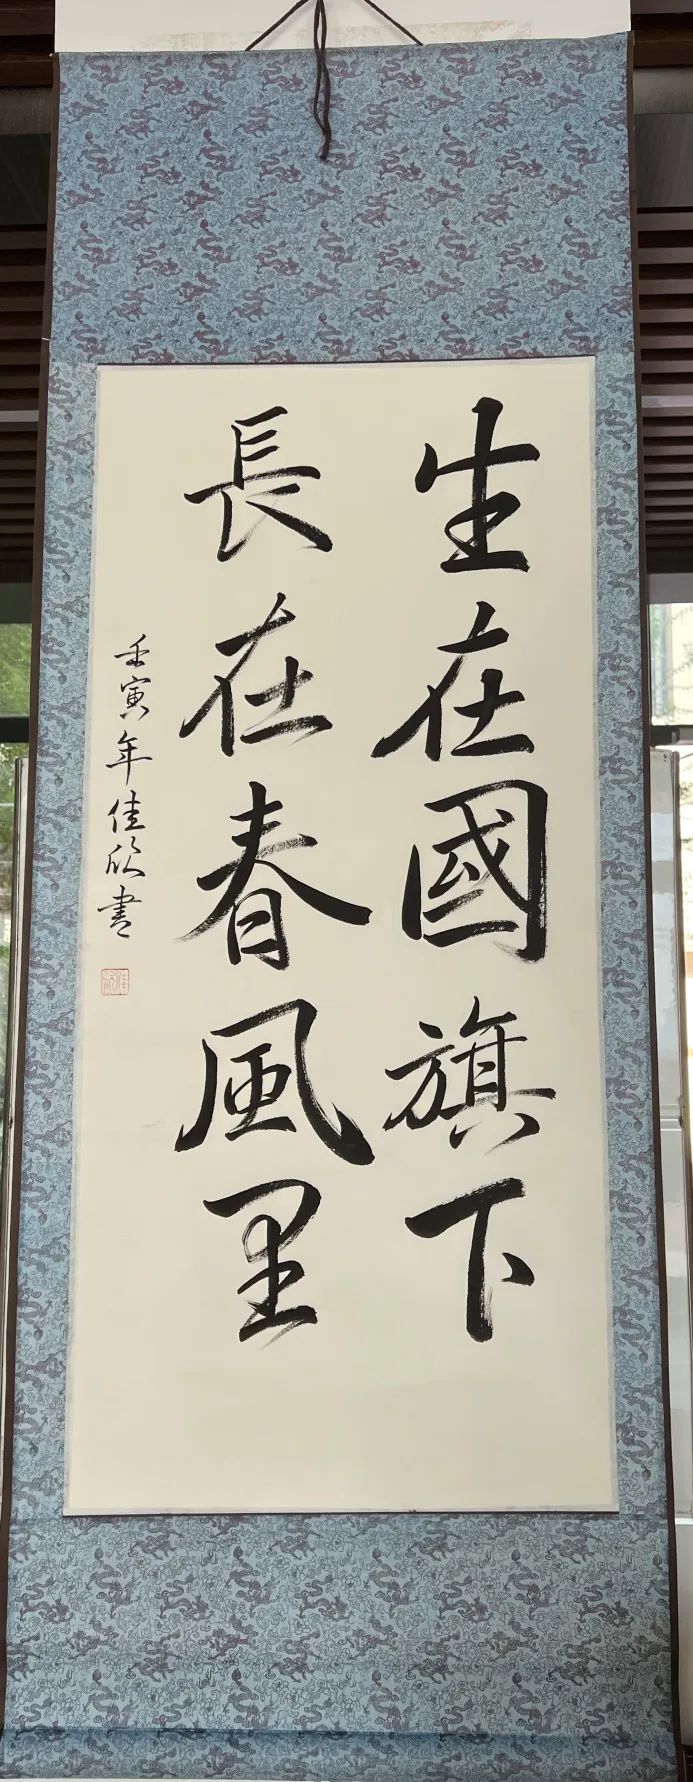 生在國旗下
長在春風里
壬寅年佳欣書
佳欣